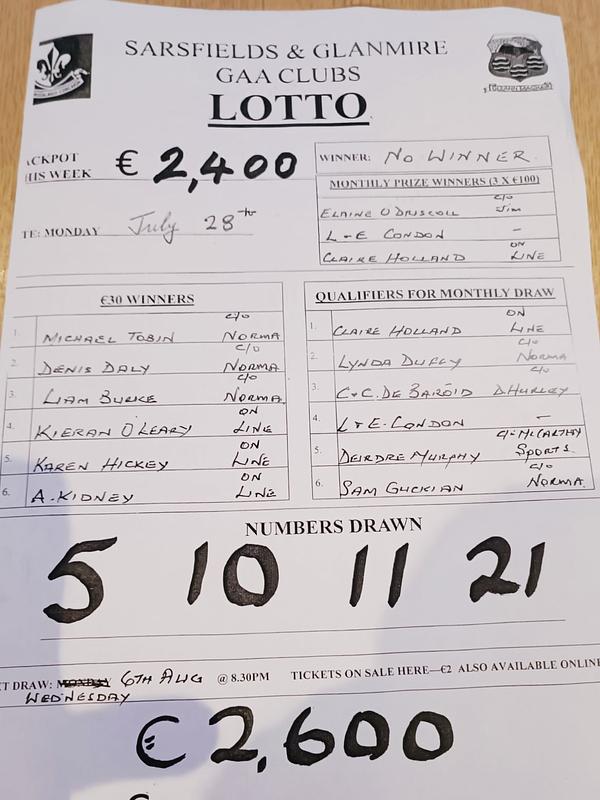 SARSFIELDS & GLANMIRE
GAA CLUBS
LOTTO
ACKPOT
HIS WEEK
€ 2,400
WINNER: NO WINNER
MONTHLY PRIZE WINNERS (3 X €100)
ELAINE O DRISCOLL c/o Jim
L + E CONDON –
CLAIRE HOLLAND ON LINE
TE: MONDAY July 28th
€30 WINNERS
1. MICHAEL TOBIN c/o NORMA
2. DENIS DALY c/o NORMA
3. LIAM BURKE c/o NORMA
4. KIERAN O'LEARY ON LINE
5. KAREN HICKEY ON LINE
6. A. KIDNEY ON LINE
QUALIFIERS FOR MONTHLY DRAW
1. CLAIRE HOLLAND ON LINE
2. LYNDA DUFFY c/o NORMA
3. C+C. DE BARÓID c/o D.HURLEY
4. L + E. CONDON –
5. DEIRDRE MURPHY SPORTS
6. SAM GUCKIAN c/o NORMA
NUMBERS DRAWN
5 10 11 21
T DRAW: MONDAY 6TH AUG @ 8.30PM TICKETS ON SALE HERE—€2 ALSO AVAILABLE ONLINE
WEDNESDAY
€2,600